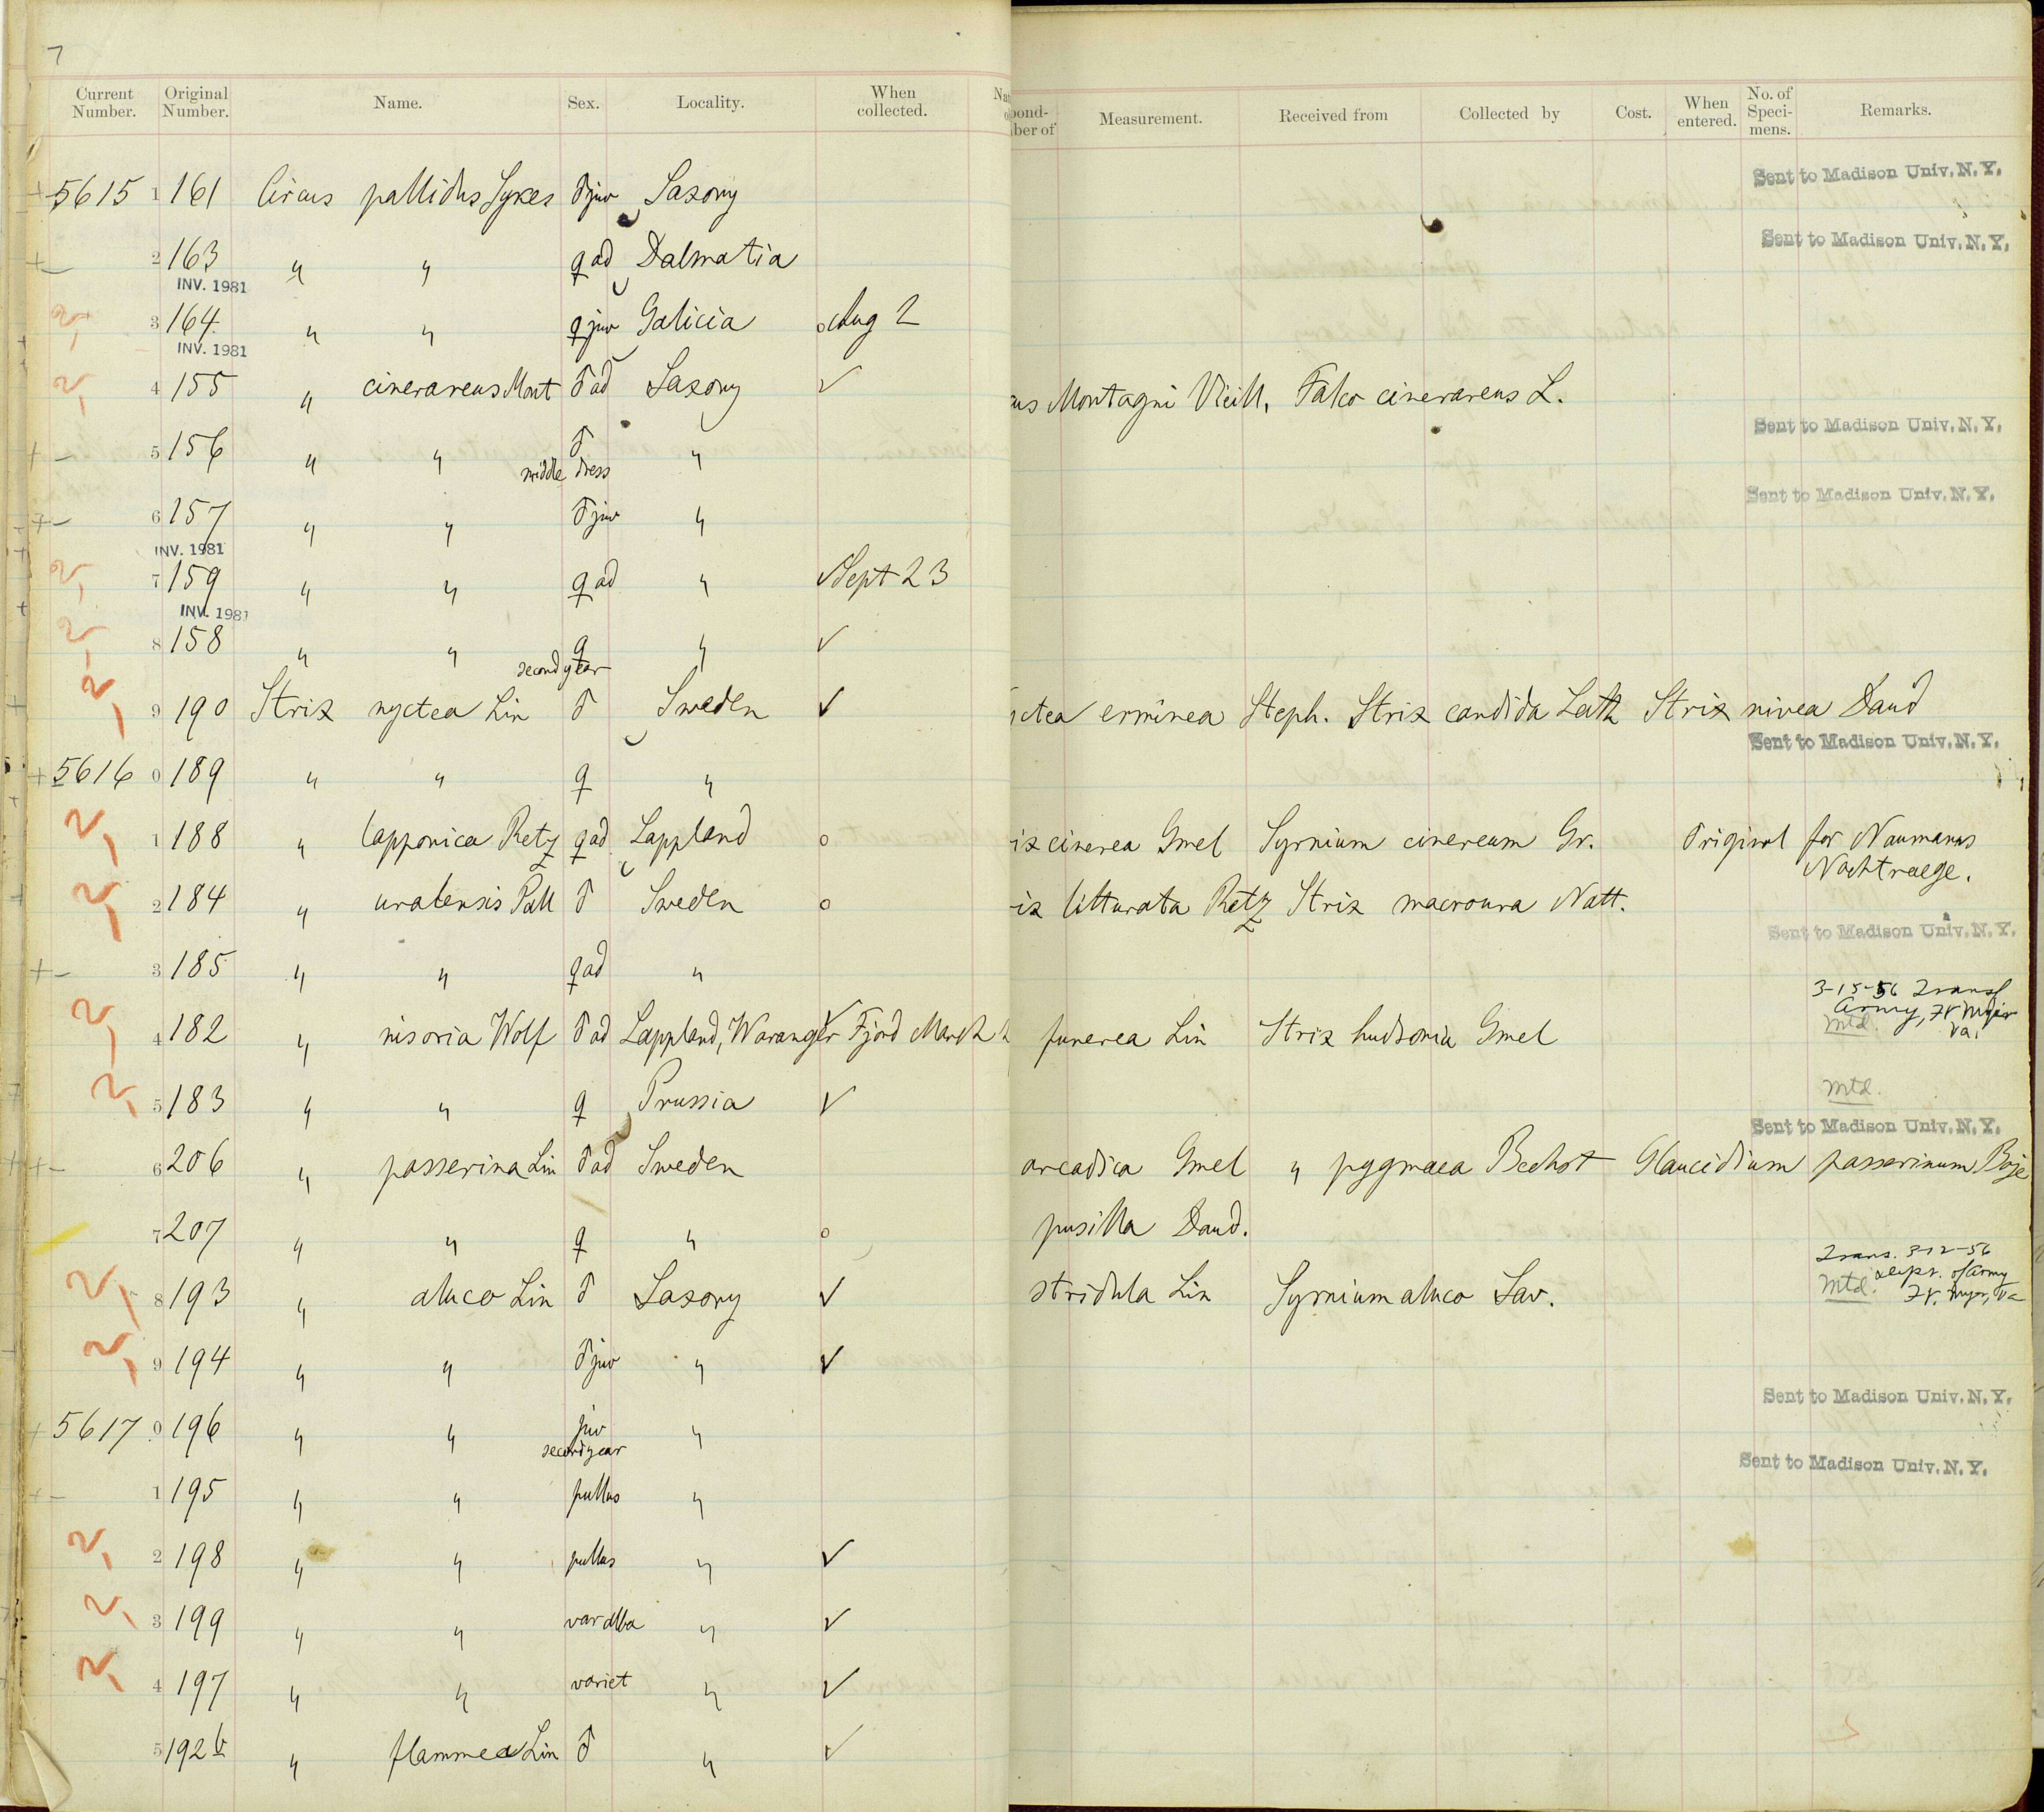 7
Current Number. Original Number. Name. Sex. Locality. When collected.
Measurement. Received from Collected by Cost. When entered. No. of Speci-mens. Remarks.
Sent to Madison Univ. N. Y.
5615 1 161 Circus pallidus Sykes ♂ juv Saxony
Sent to Madison Univ. N. Y.
2 163 " " ♀ ad Dalmatia
INV. 1981
3 164 " " ♀ juv Galicia Aug 2
INV. 1981
4 155 " cineraceus Mont ♂ ad Saxony ✓ us Montagni Vieill. Falco cineraceus L.
Sent to Madison Univ. N. Y.
5 156 " " ♂ middle dress "
Sent to Madison Univ. N. Y.
6 157 " " ♂ juv "
INV. 1981
7 159 " " ♀ ad " ✓ Sept 23
INV. 1981
8 158 " " ♀ second year " ✓
9 190 Strix nyctea Lin ♂ Sweden ✓ ctea erminea Steph. Strix candida Lath Strix nivea Daud
Sent to Madison Univ. N. Y.
5616 0 189 " " ♀ "
1 188 " lapponica Retz ♀ ad Lappland o ix cinerea Gmel Syrnium cinereum Gr. Original for Naumanns Nachtraege.
2 184 " uralensis Pall ♂ Sweden o ix litturata Retz Strix macroura Natt.
Sent to Madison Univ. N. Y.
3 185 " " ♀ ad "
3-15-56 Transf
Army, Ft Myer
Mtd. Va.
4 182 " nisoria Wolf ♂ ad Lappland, Waranger Fjord March funerea Lin Strix hudsonia Gmel
Mtd.
5 183 " " ♀ Prussia ✓
Sent to Madison Univ. N. Y.
6 206 " passerina Lin ♂ ad Sweden arcadica Gmel " pygmaea Bechst Glaucidium passerinum Boje
7 207 " " ♀ " o pusilla Daud.
Trans. 3-12-56
Dept. of Army
Mtd. Ft. Myer, Va
8 193 " aluco Lin ♂ Saxony ✓ stridula Lin Syrnium aluco Sav.
9 194 " " ♂ juv " ✓
Sent to Madison Univ. N. Y.
5617 0 196 " " juv second year "
Sent to Madison Univ. N. Y.
1 195 " " pullus "
2 198 " " pullus " ✓
3 199 " " var alba " ✓
4 197 " " variet " ✓
5 192 b " flammea Lin ♂ " ✓